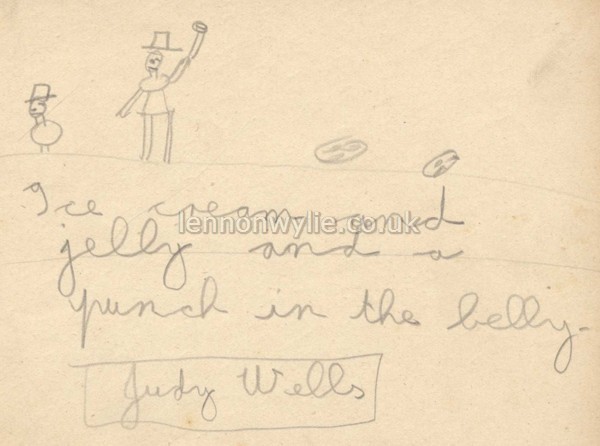 Ice cream and
lennonwylie.co.uk
jelly and a
punch in the belly.
Judy Wells